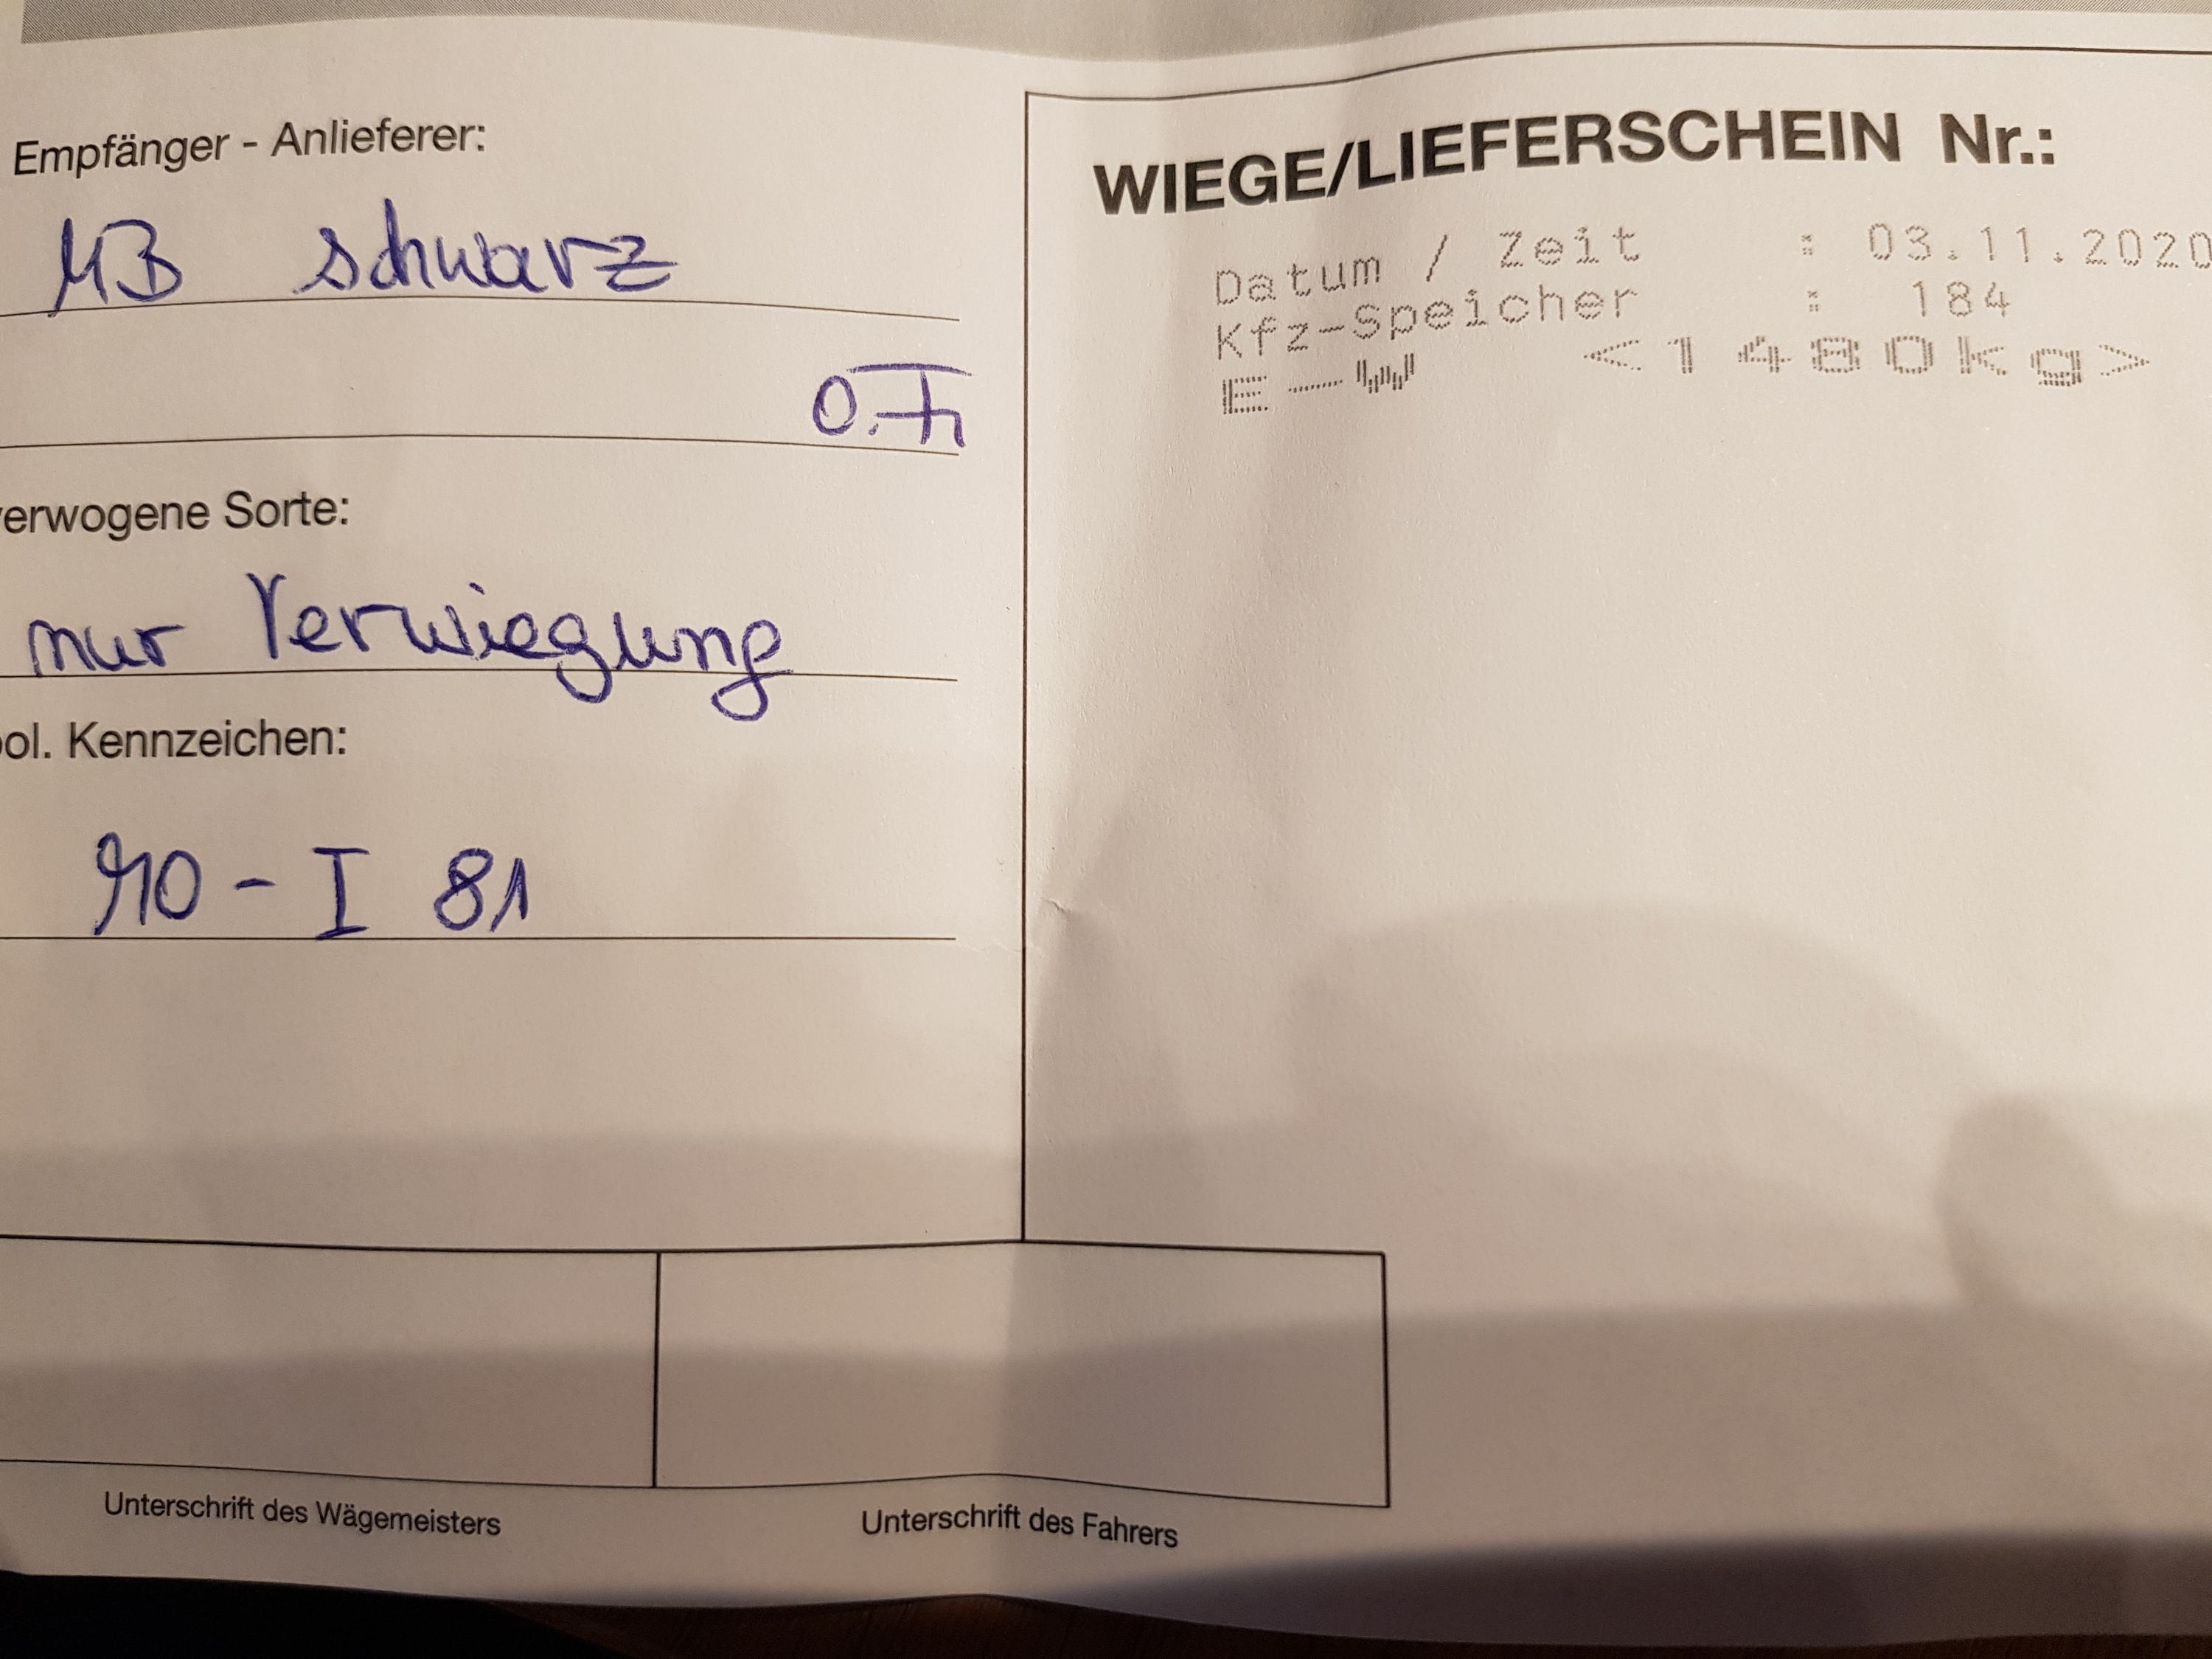 Empfänger - Anlieferer:
MB schwarz
O.F.
verwogene Sorte:
nur Verwiegung
pol. Kennzeichen:
- I 81
Unterschrift des Wägemeisters
Unterschrift des Fahrers
WIEGE/LIEFERSCHEIN Nr.:
Datum / Zeit : 03.11.2020
Kfz-Speicher : 184
E-W <1480kg>